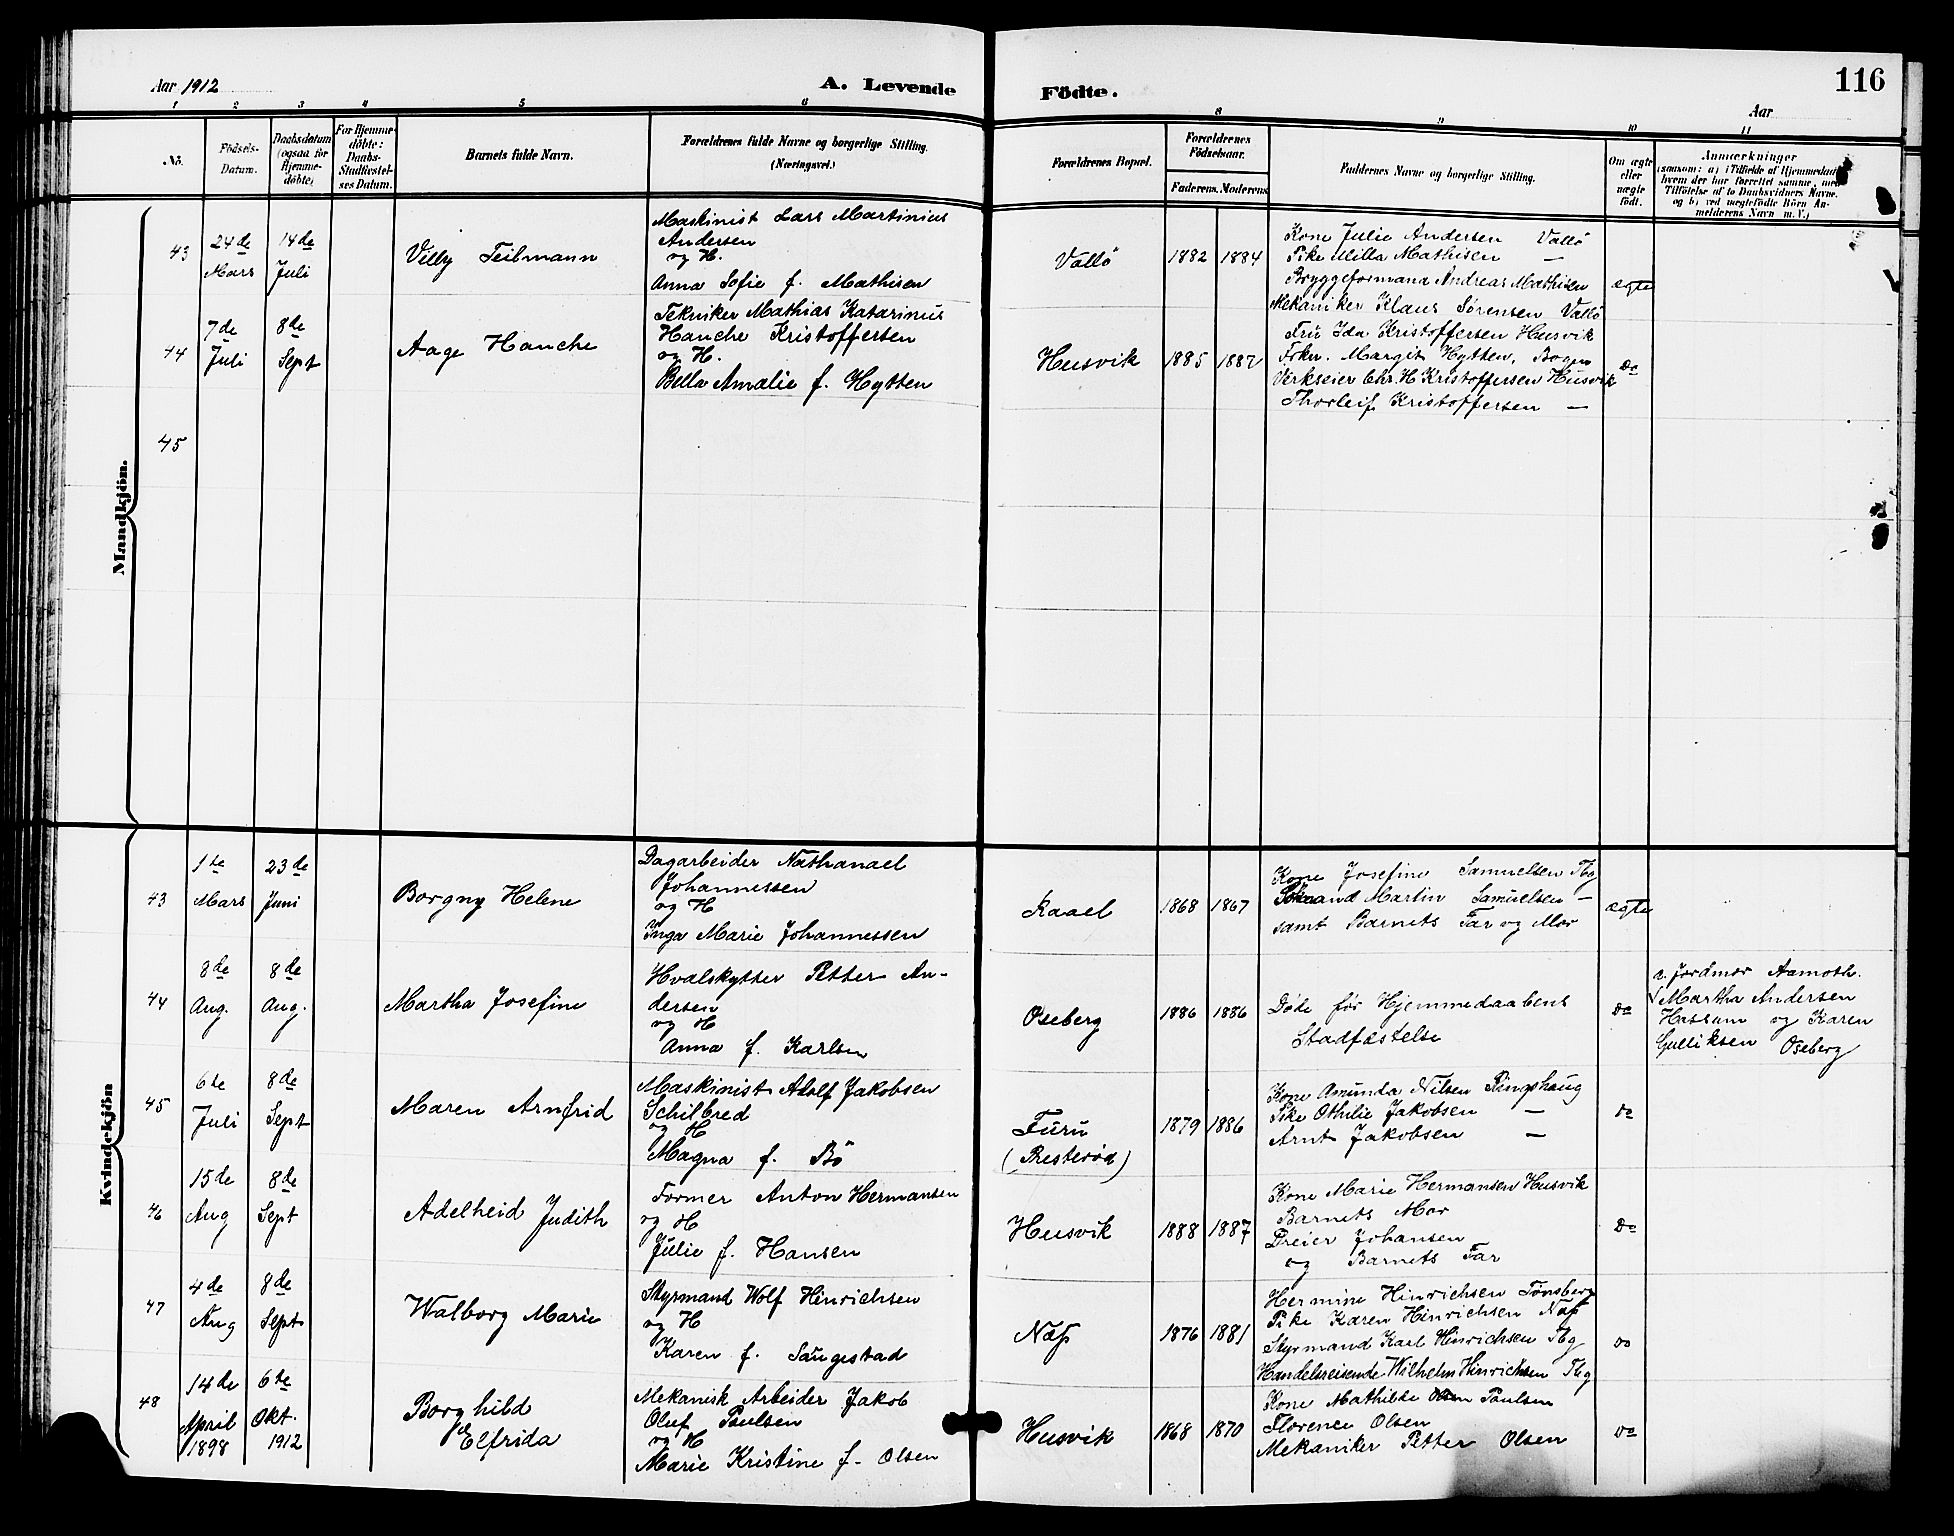 Aar 1912
A. Levende
Födte.
116
Aar
1 2 3 4 5 6 8 9 10 11
No.
Födsels-
Datum.
Daabsdatum
(ogsaa for
Hjemme-
döbte)
For Hjemme-
döbte:
Daabs-
Stadfæstel-
ses Datum.
Barnets fulde Navn.
Forældrenes fulde Navne og borgerlige Stilling.
(Næringsvei.)
Forældrenes Bopæl.
Forældrenes
Födselsaar.
Faderens. Moderens.
Faddernes Navne og borgerlige Stilling.
Om ægte
eller
uægte
født.
Anmærkninger
(saasom: a) i Tilfælde af Hjemmedaab
hvem der har forrettet samme, med
Tilföielse af to Daabsvidners Navne,
og b) ved uægtefödte Börn An-
melderens Navn m. V.)
Mandkjön.
43
24de
Mars
14de
Juli
Villy Teilmann
Maskinist Lars Martinius
Andersen
og H.
Anna Sofie f. Mathisen
Vallö
1882
1884
Kone Julie Andersen Vallö
Pike Milla Mathisen —
Bryggeformand Andreas Mathisen
Mekaniker Klaus Sørensen Vallö
ægte
44
7de
Juli
8de
Sept
Aage Hanche
Tekniker Mathias Katarinus
Hanche Kristoffersen
og H.
Bella Amalie f. Hytten
Husvik
1885
1887
Fru Ida Kristoffersen Husvik
Frkn. Margit Hytten,
Verkseier Chr. H Kristoffersen Husvik
Thorleif Kristoffersen —
Do
45
Kvindekjön
43
1te
Mars
23de
Juni
Borgny Helene
Dagarbeider Nathanael
Johannessen
og H
Inga Marie Johannessen
Kaael
1868
1867
Kone Josefine Samuelsen Tbg
Martin Samuelsen —
samt Barnets Far og Mor
ægte
44
8de
Aug.
8de
Aug.
Martha Josefine
Hvalskytter Petter An-
dersen
og H
Anna f. Karlsen
Oseberg
1886
1886
Døde før Hjemmedaabens
Stadfæstelse
Do
v. Jordmor Aamoth.
Martha Andersen
Hassum og Karen
Gulliksen Oseberg
45
6te
Juli
8de
Sept
Maren Arnfrid
Maskinist Adolf Jakobsen
Schilbred
og H
Magna f. Bö
Furu
(Presterød)
1879
1886
Kone Amunda Nilsen Ringshaug
Pike Othilie Jakobsen —
Arnt Jakobsen —
Do
46
15de
Aug
8de
Sept
Adelheid Judith
Former Anton Hermansen
og H
Julie f. Hansen
Husvik
1888
1887
Kone Marie Hermansen Husvik
Barnets Mor
Dreier Johansen
og Barnets Far
Do
47
4de
Aug
8de
Sept
Walborg Marie
Styrmand Wolf Hinrichsen
og H
Karen f. Saugestad
Næs
1876
1881
Hermine Hinrichsen Tønsberg
Pike Karen Hinrichsen Næs
Styrmand Karl Hinrichsen Tbg
Handelsreisende Wilhelm Hinrichsen Tbg
Do
48
14de
April
1898
6te
Okt.
1912
Borghild
Elfrida
Mekanisk Arbeider Jakob
Oluf Paulsen
og H
Marie Kristine f. Olsen
Husvik
1868
1870
Kone Mathilde Paulsen
Florence Olsen
Mekaniker Petter Olsen
Do